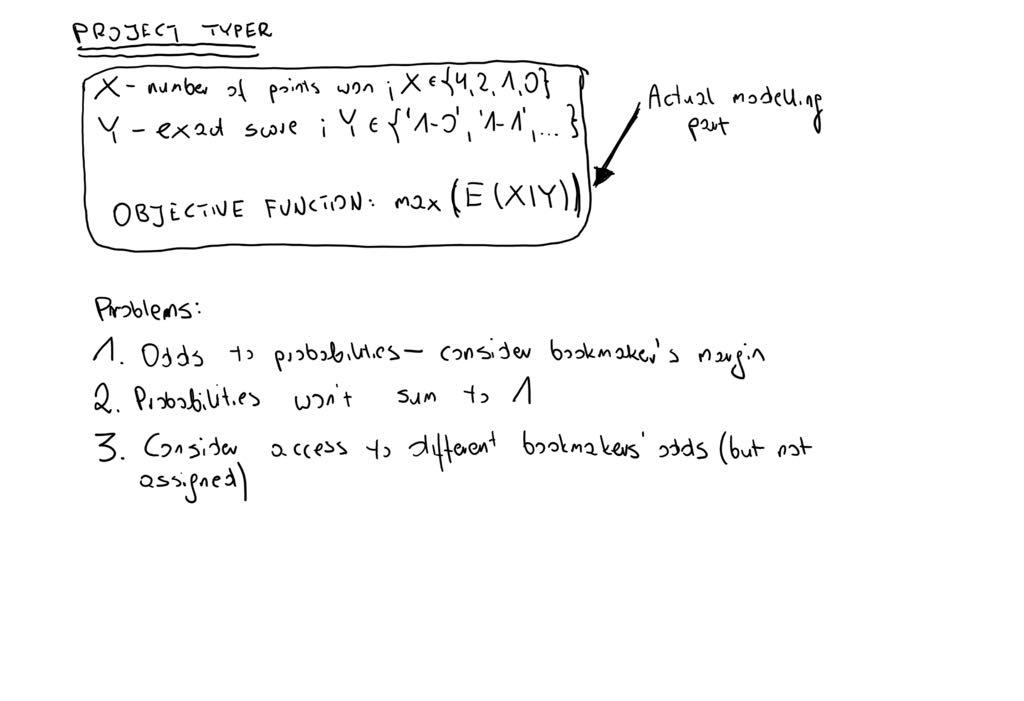 PROJECT TYPER
X - number of points won ; X ∈ {4,2,1,0}
Actual modelling
part
Y - exact score ; Y ∈ {'1-0', '1-1', ... }
OBJECTIVE FUNCTION: max (E (X|Y))
Problems:
1. Odds to probabilities - consider bookmaker's margin
2. Probabilities won't sum to 1
3. Consider access to different bookmakers' odds (but not
assigned)